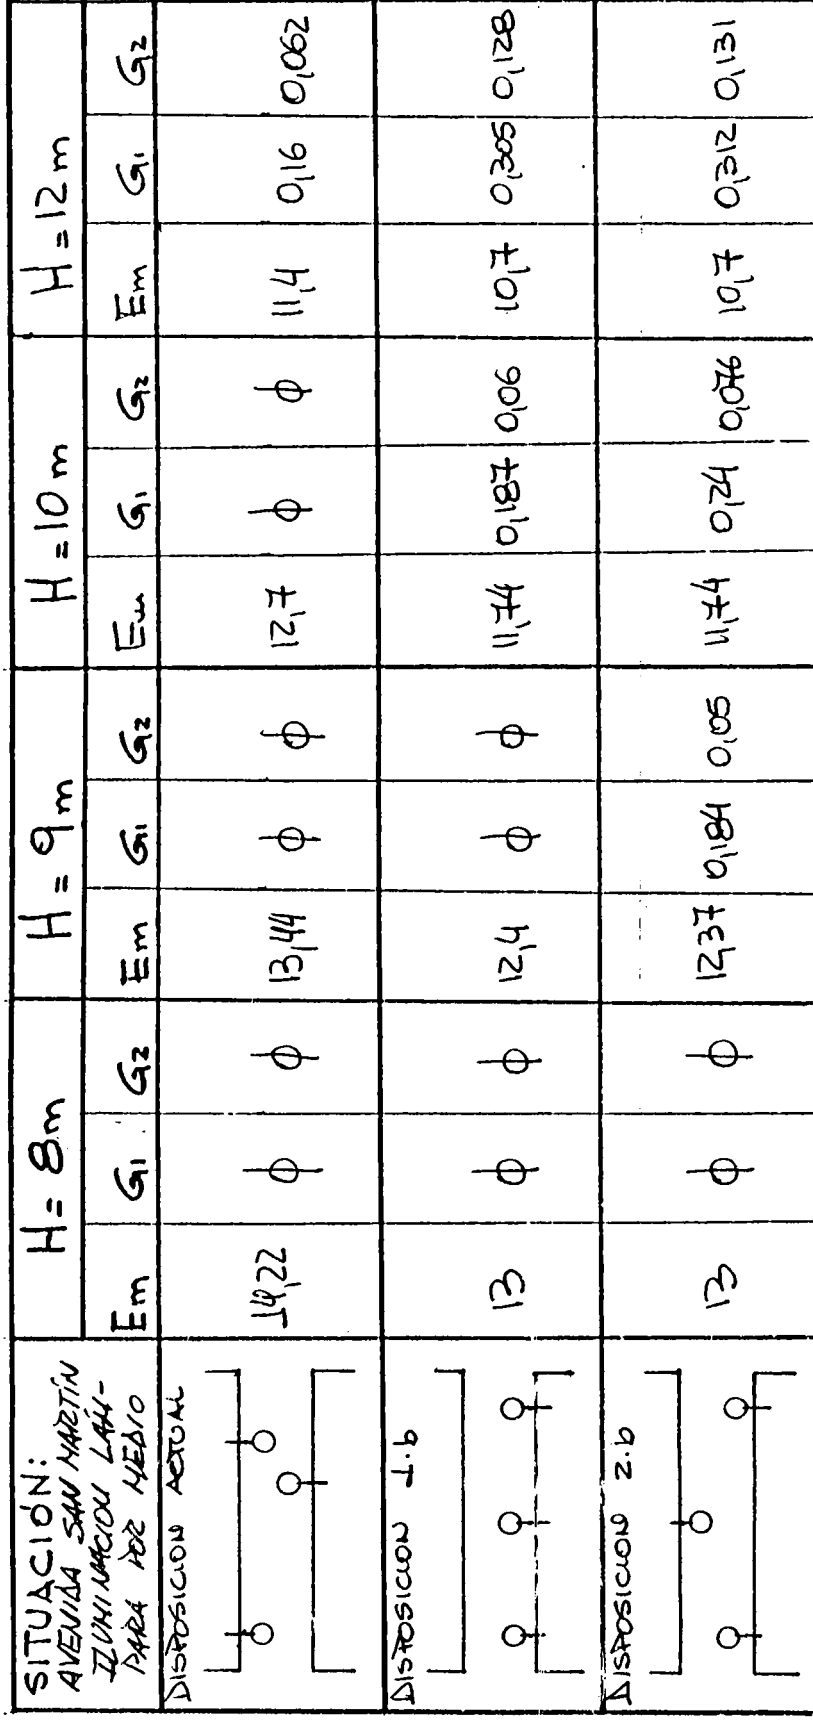 SITUACIÓN:
AVENIDA SAN MARTÍN
ILUMINACION LAM-
PARA POR MEDIO
H = 8m H = 9m H = 10m H = 12m
Em G1 G2 Em G1 G2 Em G1 G2 Em G1 G2
DISPOSICION ACTUAL
14,22 ϕ ϕ 13,44 ϕ ϕ 12,7 ϕ ϕ 11,4 0,16 0,062
DISPOSICION 1.b
13 ϕ ϕ 12,4 ϕ ϕ 11,74 0,187 0,06 10,7 0,305 0,128
DISPOSICION 2.b
13 ϕ ϕ 12,37 0,184 0,05 11,74 0,24 0,076 10,7 0,312 0,131